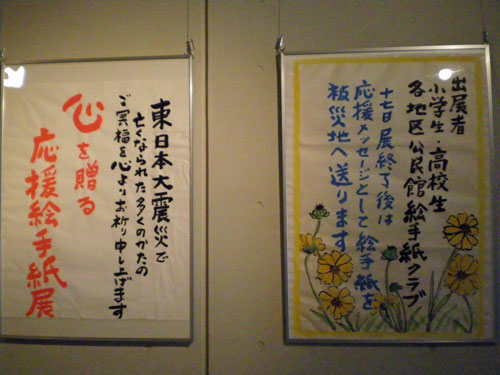 東日本大震災で
亡くなられた多くのかたの
ご冥福を心よりお祈り申し上げます
心を贈る
応援絵手紙展
出展者
小学生・高校生
各地区公民館絵手紙クラブ
十七日展終了後は
応援メッセージとして絵手紙を
被災地へ送ります